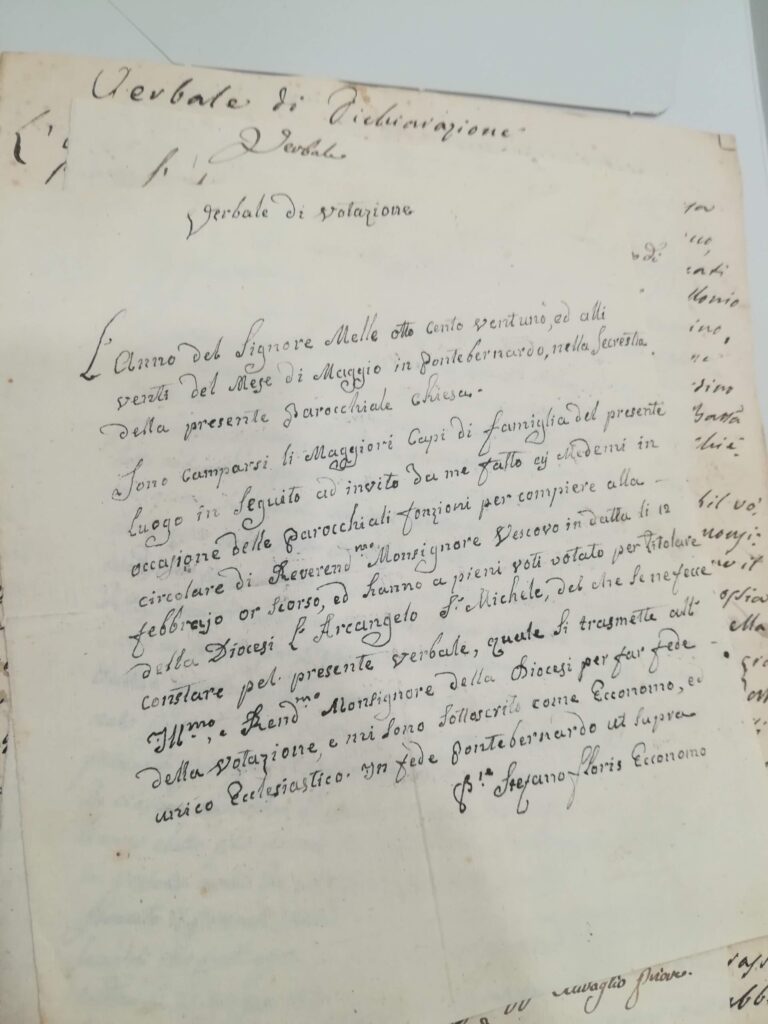 Verbale di Dichiarazione
Verbale
Verbale di votazione
di
L'Anno del Signore Melle otto cento ventuno, ed alli
venti del Mese di Maggio in Pontebernardo, nella Secrestia
della presente Parocchiale Chiesa.
Sono Comparsi li Maggiori Capi di famiglia del presente
Luogo in Seguito ad invito da me fatto ej Medemi in
occasione delle Parocchiali fonzioni per compiere alla
circolare di Reverend.mo Monsignore Vescovo in datta li 12
febbrajo or scorso, ed hanno a pieni voti votato per titolare
della Diocesi L'Arcangelo S. Michele, del che se ne fece
constare pel presente verbale, quale si trasmette all'
Ill.mo, e Rend.mo Monsignore della Diocesi per far fede
della votazione, e mi sono sottoscritto come Ecconomo, ed
unico Ecclesiastico. In fede Pontebernardo ut supra
P.te Stefano Floris Ecconomo